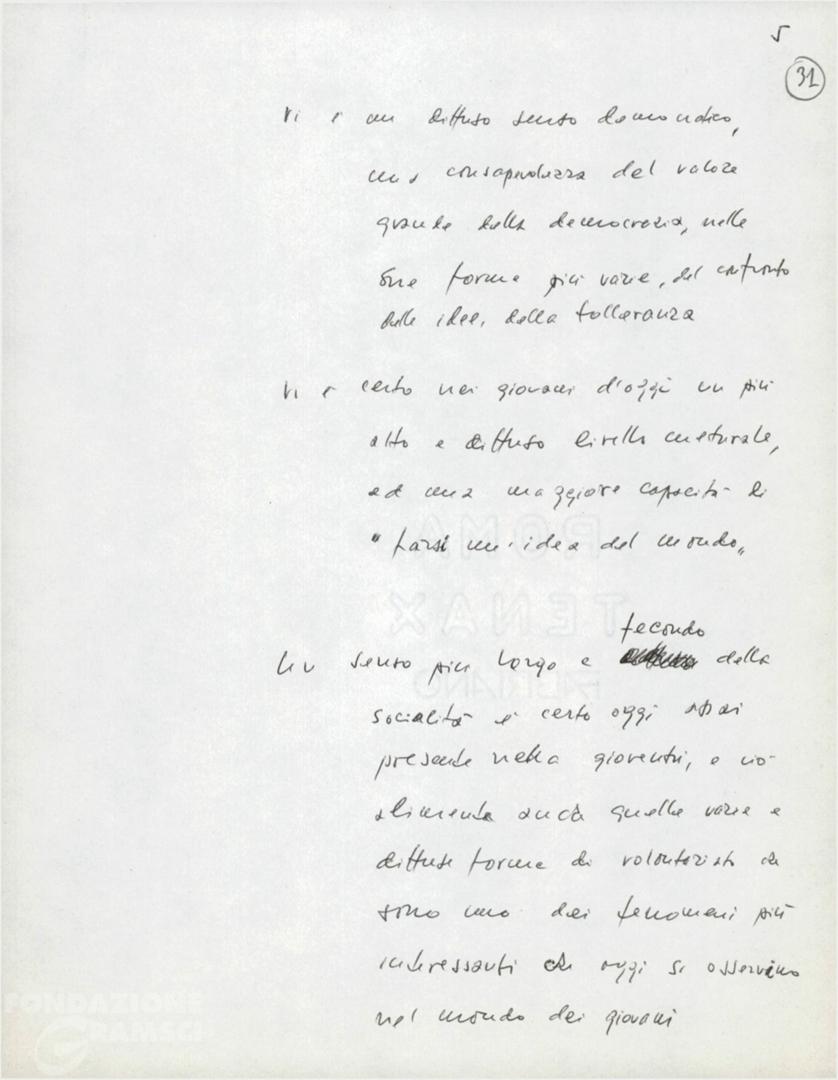 5
31
Vi è un diffuso senso democratico,
una consapevolezza del valore
grande della democrazia, nelle
sue forme più varie, del confronto
delle idee, della tolleranza
Vi è certo nei giovani d'oggi un più
alto e diffuso livello culturale,
ed una maggiore capacità di
"farsi un'idea del mondo"
fecondo
Un senso più largo e della
socialità è certo oggi assai
presente nella gioventù, e ciò
alimenta anche quelle varie e
diffuse forme di volontariato che
sono uno dei fenomeni più
interessanti che oggi si osservino
nel mondo dei giovani
ROMA
TENAX
FABRIANO
FONDAZIONE
GRAMSCI